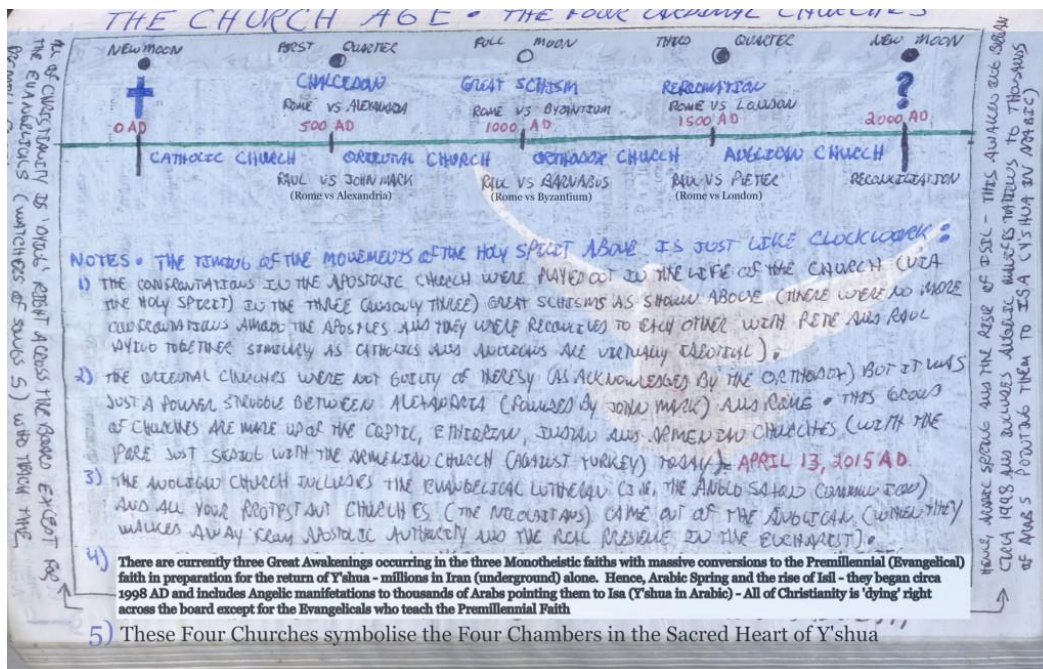 THE CHURCH AGE • THE FOUR CARDINAL CHURCHES
NEW MOON FIRST QUARTER FULL MOON THIRD QUARTER NEW MOON
CHALCEDON GREAT SCHISM REFORMATION ?
ROME VS ALEXANDRIA ROME VS BYZANTIUM ROME VS LONDON
0 AD 500 AD 1000 AD 1500 AD 2000 AD
CATHOLIC CHURCH ORIENTAL CHURCH ORTHODOX CHURCH ANGLICAN CHURCH
PAUL VS JOHN MARK PAUL VS BARNABUS PAUL VS PETER RECONCILIATION
(Rome vs Alexandria) (Rome vs Byzantium) (Rome vs London)
NOTES • THE TIMING OF THE MOVEMENTS OF THE HOLY SPIRIT ABOVE IS JUST LIKE CLOCKWORK:
1) THE CONFRONTATIONS IN THE APOSTOLIC CHURCH WERE PLAYED OUT IN THE LIFE OF THE CHURCH (VIA
THE HOLY SPIRIT) IN THE THREE (AND ONLY THREE) GREAT SCHISMS AS SHOWN ABOVE (THERE WERE NO MORE
CONFRONTATIONS AMONG THE APOSTLES AND THEY WERE RECONCILED TO EACH OTHER WITH PETE AND PAUL
DYING TOGETHER SIMILARLY AS CATHOLICS AND ANGLICANS ARE VIRTUALLY IDENTICAL).
2) THE ORIENTAL CHURCHES WERE NOT GUILTY OF HERESY (AS ACKNOWLEDGED BY THE ORTHODOX) BUT IT WAS
JUST A POWER STRUGGLE BETWEEN ALEXANDRIA (FOUNDED BY JOHN MARK) AND ROME • THIS GROUP
OF CHURCHES ARE MADE UP OF THE COPTIC, ETHIOPIAN, INDIAN AND ARMENIAN CHURCHES (WITH THE
POPE JUST SIDING WITH THE ARMENIAN CHURCH (AGAINST TURKEY) TODAY) - APRIL 13, 2015 AD
3) THE ANGLICAN CHURCH INCLUDES THE EVANGELICAL LUTHERAN (IE, THE ANGLO SAXON COMMUNION)
AND ALL YOUR PROTESTANT CHURCHES (THE NICOLAITANS) CAME OUT OF THE ANGLICAN (WHEN THEY
WALKED AWAY FROM APOSTOLIC AUTHORITY AND THE REAL PRESENCE IN THE EUCHARIST).
4) There are currently three Great Awakenings occurring in the three Monotheistic faiths with massive conversions to the Premillennial (Evangelical)
faith in preparation for the return of Y'shua - millions in Iran (underground) alone. Hence, Arabic Spring and the rise of Isil - they began circa
1998 AD and includes Angelic manifetations to thousands of Arabs pointing them to Isa (Y'shua in Arabic) - All of Christianity is 'dying' right
across the board except for the Evangelicals who teach the Premillennial Faith
5) These Four Churches symbolise the Four Chambers in the Sacred Heart of Y'shua
ALL OF CHRISTIANITY IS 'DYING' RIGHT ACROSS THE BOARD EXCEPT FOR
THE EVANGELICALS (WATCHERS OF SONGS 5) WHO TEACH THE
HENCE, ARABIC SPRING AND THE RISE OF ISIL - THIS AWAKENING BEGAN
CIRCA 1998 AND INCLUDES ANGELIC MANIFESTATIONS TO THOUSANDS
OF ARABS POINTING THEM TO ISA (Y'SHUA IN ARABIC)